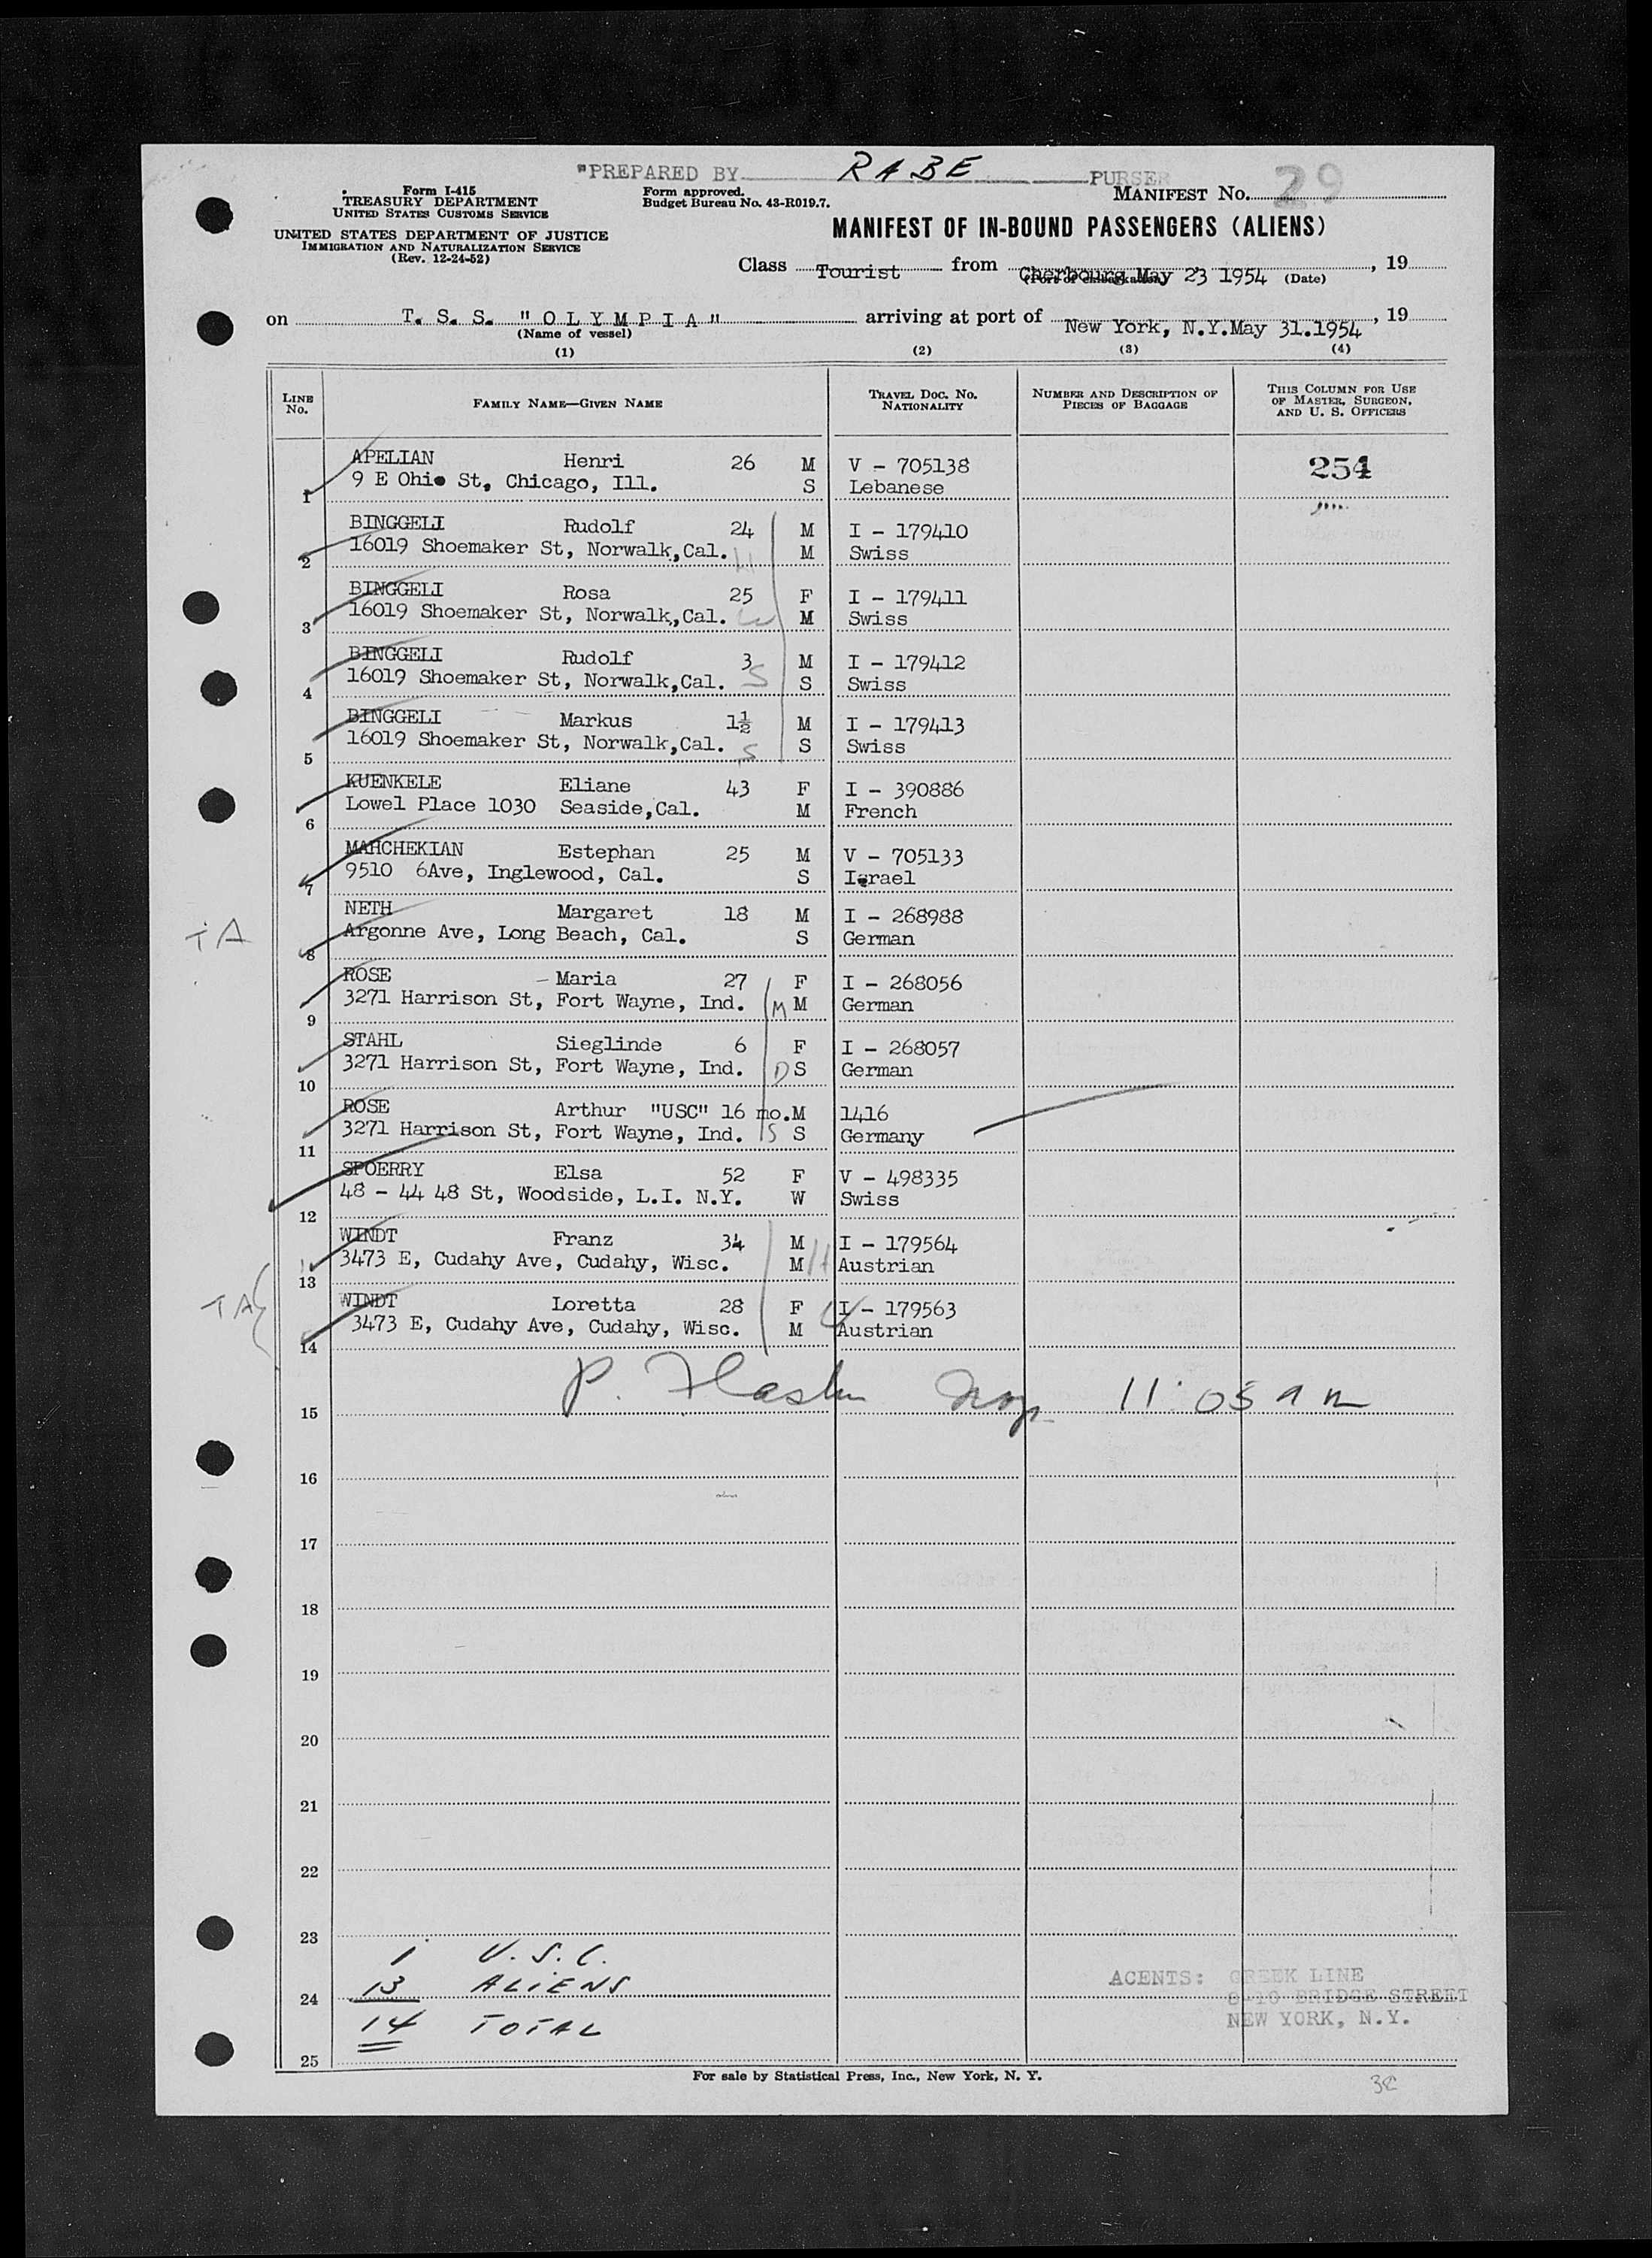 "PREPARED BY RABE PURSER
Form I-415
TREASURY DEPARTMENT
UNITED STATES CUSTOMS SERVICE
UNITED STATES DEPARTMENT OF JUSTICE
IMMIGRATION AND NATURALIZATION SERVICE
(Rev. 12-24-52)
Form approved.
Budget Bureau No. 43-R019.7.
MANIFEST No. 29
MANIFEST OF IN-BOUND PASSENGERS (ALIENS)
Class Tourist from Cherbourg May 23 1954, 19
(Port of embarkation) (Date)
on T. S. S. "OLYMPIA" arriving at port of New York, N.Y.May 31.1954, 19
(Name of vessel)
(1) (2) (3) (4)
LINE No. FAMILY NAME—GIVEN NAME TRAVEL DOC. No. NATIONALITY NUMBER AND DESCRIPTION OF PIECES OF BAGGAGE THIS COLUMN FOR USE OF MASTER, SURGEON, AND U. S. OFFICERS
APELIAN Henri 26 M V - 705138 254
1 9 E Ohio St, Chicago, Ill. S Lebanese
BINGGELI Rudolf 24 M I - 179410
2 16019 Shoemaker St, Norwalk,Cal. H M Swiss
BINGGELI Rosa 25 F I - 179411
3 16019 Shoemaker St, Norwalk,Cal. W M Swiss
BINGGELI Rudolf 3 M I - 179412
4 16019 Shoemaker St, Norwalk,Cal. S S Swiss
BINGGELI Markus 1½ M I - 179413
5 16019 Shoemaker St, Norwalk,Cal. S S Swiss
KUENKELE Eliane 43 F I - 390886
6 Lowel Place 1030 Seaside,Cal. M French
MAHCHEKIAN Estephan 25 M V - 705133
7 9510 6Ave, Inglewood, Cal. S Israel
NETH Margaret 18 M I - 268988
TA 8 Argonne Ave, Long Beach, Cal. S German
ROSE - Maria 27 F I - 268056
9 3271 Harrison St, Fort Wayne, Ind. M M German
STAHL Sieglinde 6 F I - 268057
10 3271 Harrison St, Fort Wayne, Ind. D S German
ROSE Arthur "USC" 16 mo.M 1416
11 3271 Harrison St, Fort Wayne, Ind. S S Germany
SPOERRY Elsa 52 F V - 498335
12 48 - 44 48 St, Woodside, L.I. N.Y. W Swiss
WINDT Franz 34 M I - 179564
13 3473 E, Cudahy Ave, Cudahy, Wisc. M H Austrian
TA WINDT Loretta 28 F I - 179563
14 3473 E, Cudahy Ave, Cudahy, Wisc. M W Austrian
15 P. 11:05 am
16
17
18
19
20
21
22
23
1 U.S.C.
24 13 ALIENS
14 TOTAL
25
AGENTS: GREEK LINE
8-10 BRIDGE STREET
NEW YORK, N.Y.
For sale by Statistical Press, Inc., New York, N. Y.